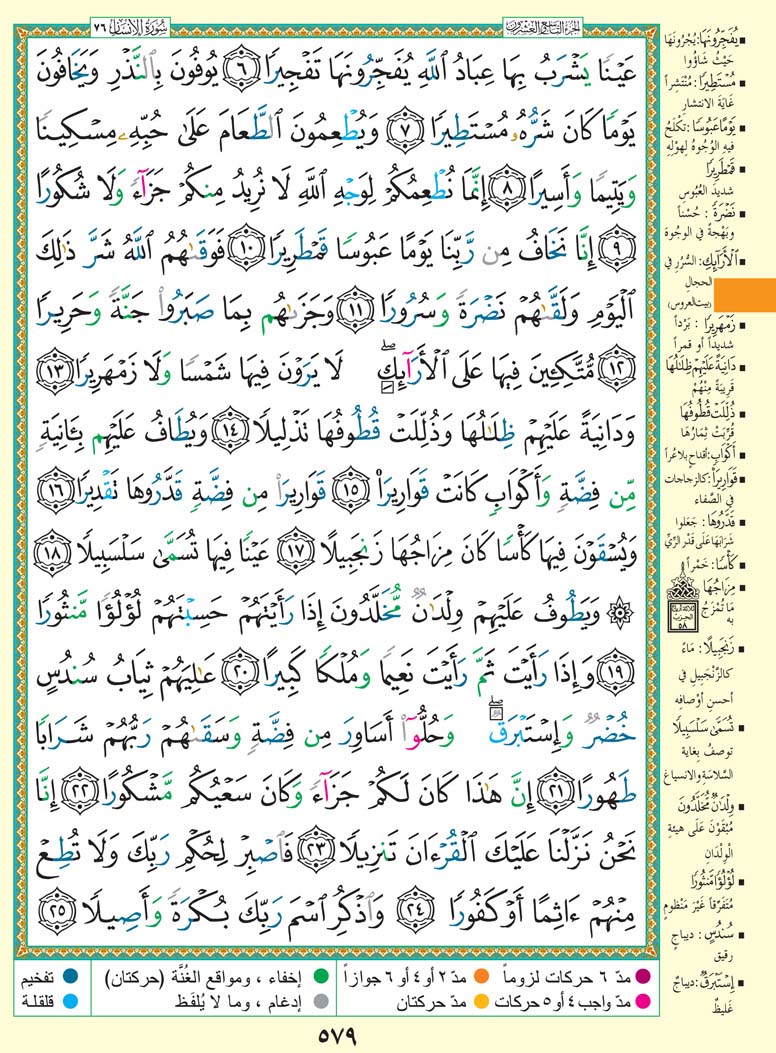 الجزء التاسع والعشرون
سورة الإنسان ٧٦
عَيْنًا يَشْرَبُ بِهَا عِبَادُ اللَّهِ يُفَجِّرُونَهَا تَفْجِيرًا ﴿٦﴾ يُوفُونَ بِالنَّذْرِ وَيَخَافُونَ
يَوْمًا كَانَ شَرُّهُ مُسْتَطِيرًا ﴿٧﴾ وَيُطْعِمُونَ الطَّعَامَ عَلَىٰ حُبِّهِ مِسْكِينًا
وَيَتِيمًا وَأَسِيرًا ﴿٨﴾ إِنَّمَا نُطْعِمُكُمْ لِوَجْهِ اللَّهِ لَا نُرِيدُ مِنكُمْ جَزَاءً وَلَا شُكُورًا
﴿٩﴾ إِنَّا نَخَافُ مِن رَّبِّنَا يَوْمًا عَبُوسًا قَمْطَرِيرًا ﴿١٠﴾ فَوَقَىٰهُمُ اللَّهُ شَرَّ ذَٰلِكَ
الْيَوْمِ وَلَقَّىٰهُمْ نَضْرَةً وَسُرُورًا ﴿١١﴾ وَجَزَىٰهُم بِمَا صَبَرُوا جَنَّةً وَحَرِيرًا
﴿١٢﴾ مُّتَّكِـِٔينَ فِيهَا عَلَى الْأَرَآئِكِ ۖ لَا يَرَوْنَ فِيهَا شَمْسًا وَلَا زَمْهَرِيرًا ﴿١٣﴾
وَدَانِيَةً عَلَيْهِمْ ظِلَٰلُهَا وَذُلِّلَتْ قُطُوفُهَا تَذْلِيلًا ﴿١٤﴾ وَيُطَافُ عَلَيْهِم بِـَٔانِيَةٍ
مِّن فِضَّةٍ وَأَكْوَابٍ كَانَتْ قَوَارِيرَا۠ ﴿١٥﴾ قَوَارِيرَا۟ مِن فِضَّةٍ قَدَّرُوهَا تَقْدِيرًا ﴿١٦﴾
وَيُسْقَوْنَ فِيهَا كَأْسًا كَانَ مِزَاجُهَا زَنجَبِيلًا ﴿١٧﴾ عَيْنًا فِيهَا تُسَمَّىٰ سَلْسَبِيلًا ﴿١٨﴾
۞ وَيَطُوفُ عَلَيْهِمْ وِلْدَٰنٌ مُّخَلَّدُونَ إِذَا رَأَيْتَهُمْ حَسِبْتَهُمْ لُؤْلُؤًا مَّنثُورًا
﴿١٩﴾ وَإِذَا رَأَيْتَ ثَمَّ رَأَيْتَ نَعِيمًا وَمُلْكًا كَبِيرًا ﴿٢٠﴾ عَٰلِيَهُمْ ثِيَابُ سُندُسٍ
خُضْرٌ وَإِسْتَبْرَقٌ ۖ وَحُلُّوٓا۟ أَسَاوِرَ مِن فِضَّةٍ وَسَقَىٰهُمْ رَبُّهُمْ شَرَابًا
طَهُورًا ﴿٢١﴾ إِنَّ هَٰذَا كَانَ لَكُمْ جَزَآءً وَكَانَ سَعْيُكُم مَّشْكُورًا ﴿٢٢﴾ إِنَّا
نَحْنُ نَزَّلْنَا عَلَيْكَ الْقُرْءَانَ تَنزِيلًا ﴿٢٣﴾ فَاصْبِرْ لِحُكْمِ رَبِّكَ وَلَا تُطِعْ
مِنْهُمْ ءَاثِمًا أَوْ كَفُورًا ﴿٢٤﴾ وَاذْكُرِ اسْمَ رَبِّكَ بُكْرَةً وَأَصِيلًا ﴿٢٥﴾
▪ يُفَجِّرُونَهَا: يُجْرُونَهَا
حَيْثُ شَاؤُوا
▪ مُسْتَطِيرًا: مُنْتَشِراً
غَايَةَ الانتشار
▪ يَوْمًا عَبُوسًا: تَكْلَحُ
فيهِ الوُجُوهُ لِهَوْلِهِ
▪ قَمْطَرِيرًا
شديدَ العُبُوسِ
▪ نَضْرَةً: حُسْناً
وَبَهْجَةً في الوجُوهِ
▪ الْأَرَآئِكِ: السُّرُرِ في
الحجالِ
(بيت العروس)
▪ زَمْهَرِيرًا: بَرْداً
شديداً أو قمراً
▪ دَانِيَةً عَلَيْهِمْ ظِلَالُهَا
قَرِيبَةً مِنْهُمْ
▪ ذُلِّلَتْ قُطُوفُهَا
قُرِّبَتْ ثِمَارُهَا
▪ أَكْوَابٍ: أقداحٍ بلا عُراً
▪ قَوَارِيرَا: كالزجاجات
في الصَّفاء
▪ قَدَّرُوهَا: جَعَلوا
شَرَابَهَا عَلَى قَدْرِ الرِّيِّ
▪ كَأْسًا: خَمْراً
▪ مِزَاجُهَا
مَا تُمْزَجُ
به
ثلاثة أرباع
الحزب
٥٨
▪ زَنجَبِيلًا: مَاءً
كالزَّنْجَبِيلِ في
أحسنِ أوْصافِهِ
▪ تُسَمَّىٰ سَلْسَبِيلًا
توصفُ بِغاية
السَّلاسَةِ والانسياغ
▪ وِلْدَانٌ مُّخَلَّدُونَ
مُبْقَوْنَ عَلَى هيئةِ
الوِلْدَانِ
▪ لُؤْلُؤًا مَّنثُورًا
مُتَفَرِّقاً غَيْرَ مَنْظُومٍ
▪ سُندُسٍ: ديباجٍ
رقيق
▪ إِسْتَبْرَقٌ: ديباجٌ
غَليظٌ
مدّ ٦ حركات لزوماً
مدّ ٢ أو ٤ أو ٦ جوازاً
إخفاء ، ومواقع الغُنَّة (حركتان)
تفخيم
مدّ واجب ٤ أو ٥ حركات
مدّ حركتان
إدغام ، وما لا يُلفَظ
قلقلة
٥٧٩